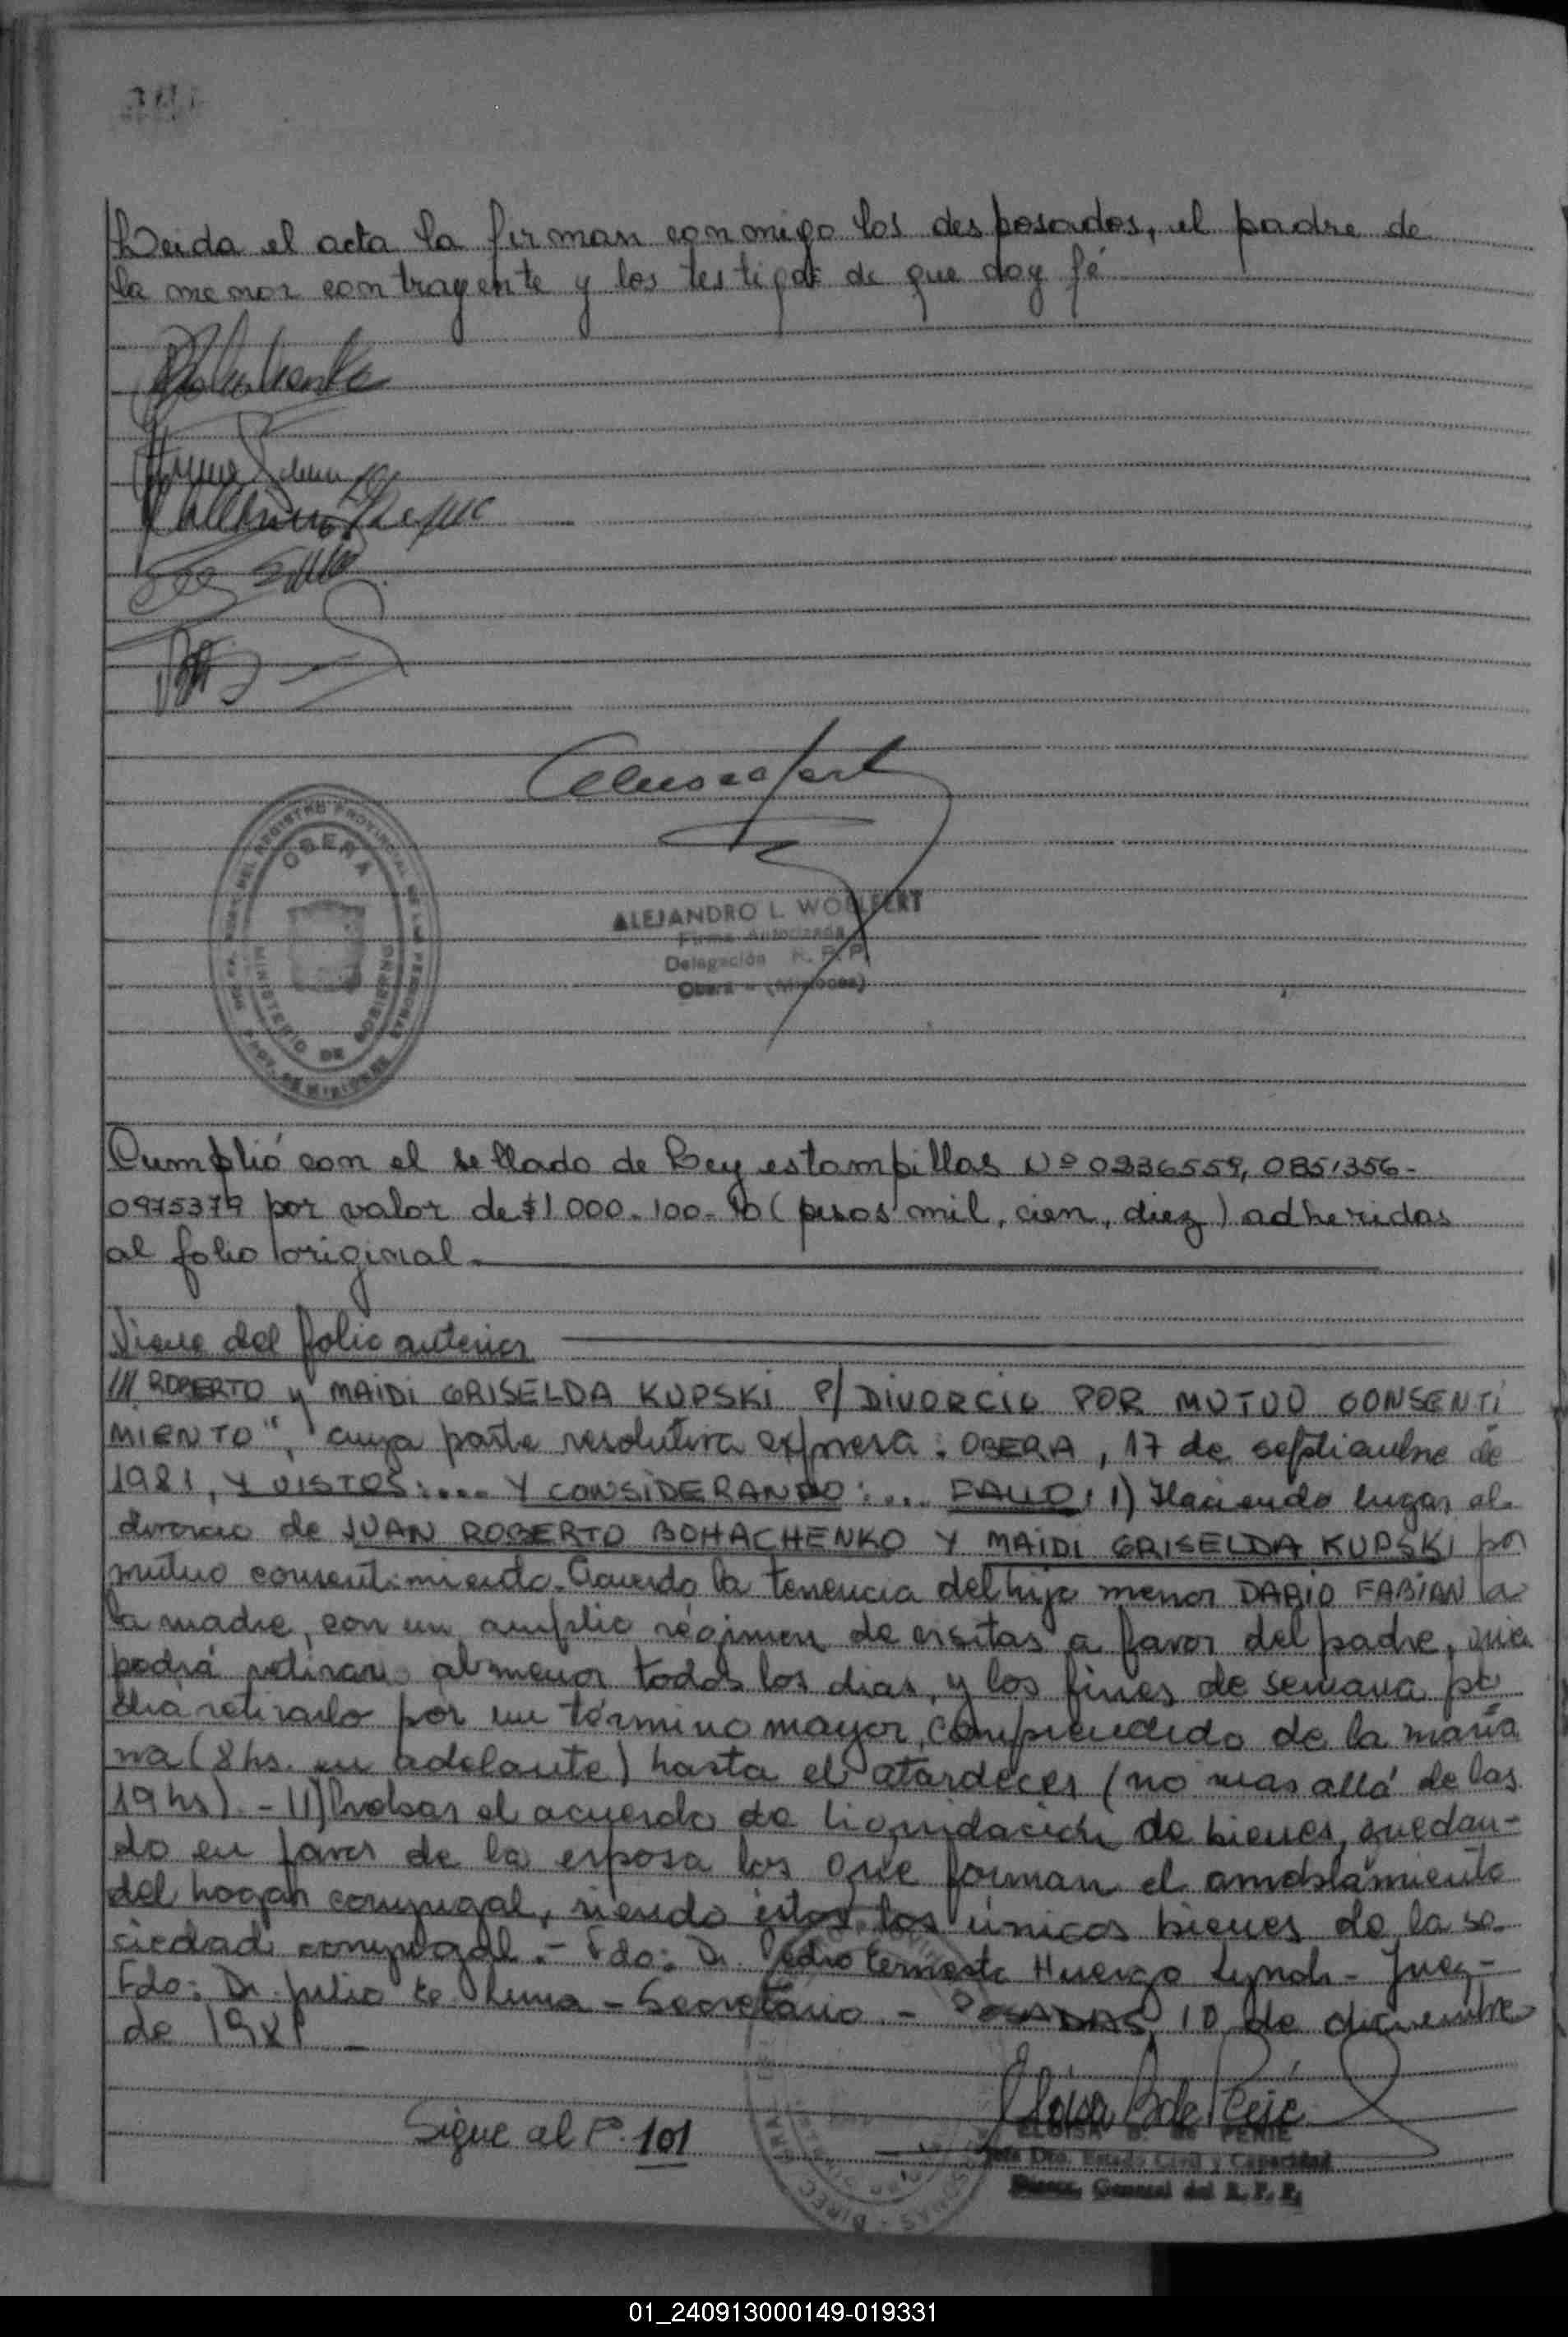 Leida el acta la firman conmigo los desposados, el padre de
la menor contrayente y los testigos de que doy fé
OBERA
MINISTERIO DE GOBIERNO
ALEJANDRO L. WOLFERT
Firma Autorizada
Delegación R. P. P.
Oberá - (Misiones)
Cumplió con el sellado de Ley estampillas Nº 0236559, 0851356-
0975379 por valor de $1.000-100-10 (pesos mil, cien, diez) adheridas
al folio original.
Viene del folio anterior
/// ROBERTO y MAIDI GRISELDA KUPSKI P/ DIVORCIO POR MUTUO CONSENTI
MIENTO", cuya parte resolutiva expresa: OBERA, 17 de septiembre de
1981, Y VISTOS:.... Y CONSIDERANDO:... FALLO: 1) Haciendo lugar al
divorcio de JUAN ROBERTO BOHACHENKO Y MAIDI GRISELDA KUPSKI por
mutuo consentimiento. Acuerdo la tenencia del hijo menor DARIO FABIAN a
la madre, con un amplio régimen de visitas a favor del padre, que
podrá retirar al menor todos los dias, y los fines de semana po
drá retirarlo por un término mayor, comprendido de la maña
na (8 hs. en adelante) hasta el atardecer (no mas allá de las
19 hs). - II) el acuerdo de liquidación de bienes, quedan-
do en favor de la esposa los que forman el amoblamiento
del hogar conyugal, siendo éstos los únicos bienes de la so
ciedad conyugal. - Fdo: Dr. Pedro Ernesto Huergo Lynch - Juez -
Fdo: Dr. Julio Luna - Secretario. - POSADAS, 10 de diciembre
de 1981 -
Sigue al Fº. 101
ELOISA B. de PEHIE
Jefe Dto. Estado Civil y Capacidad
Direcc. General del R. P. P.
01_240913000149-019331